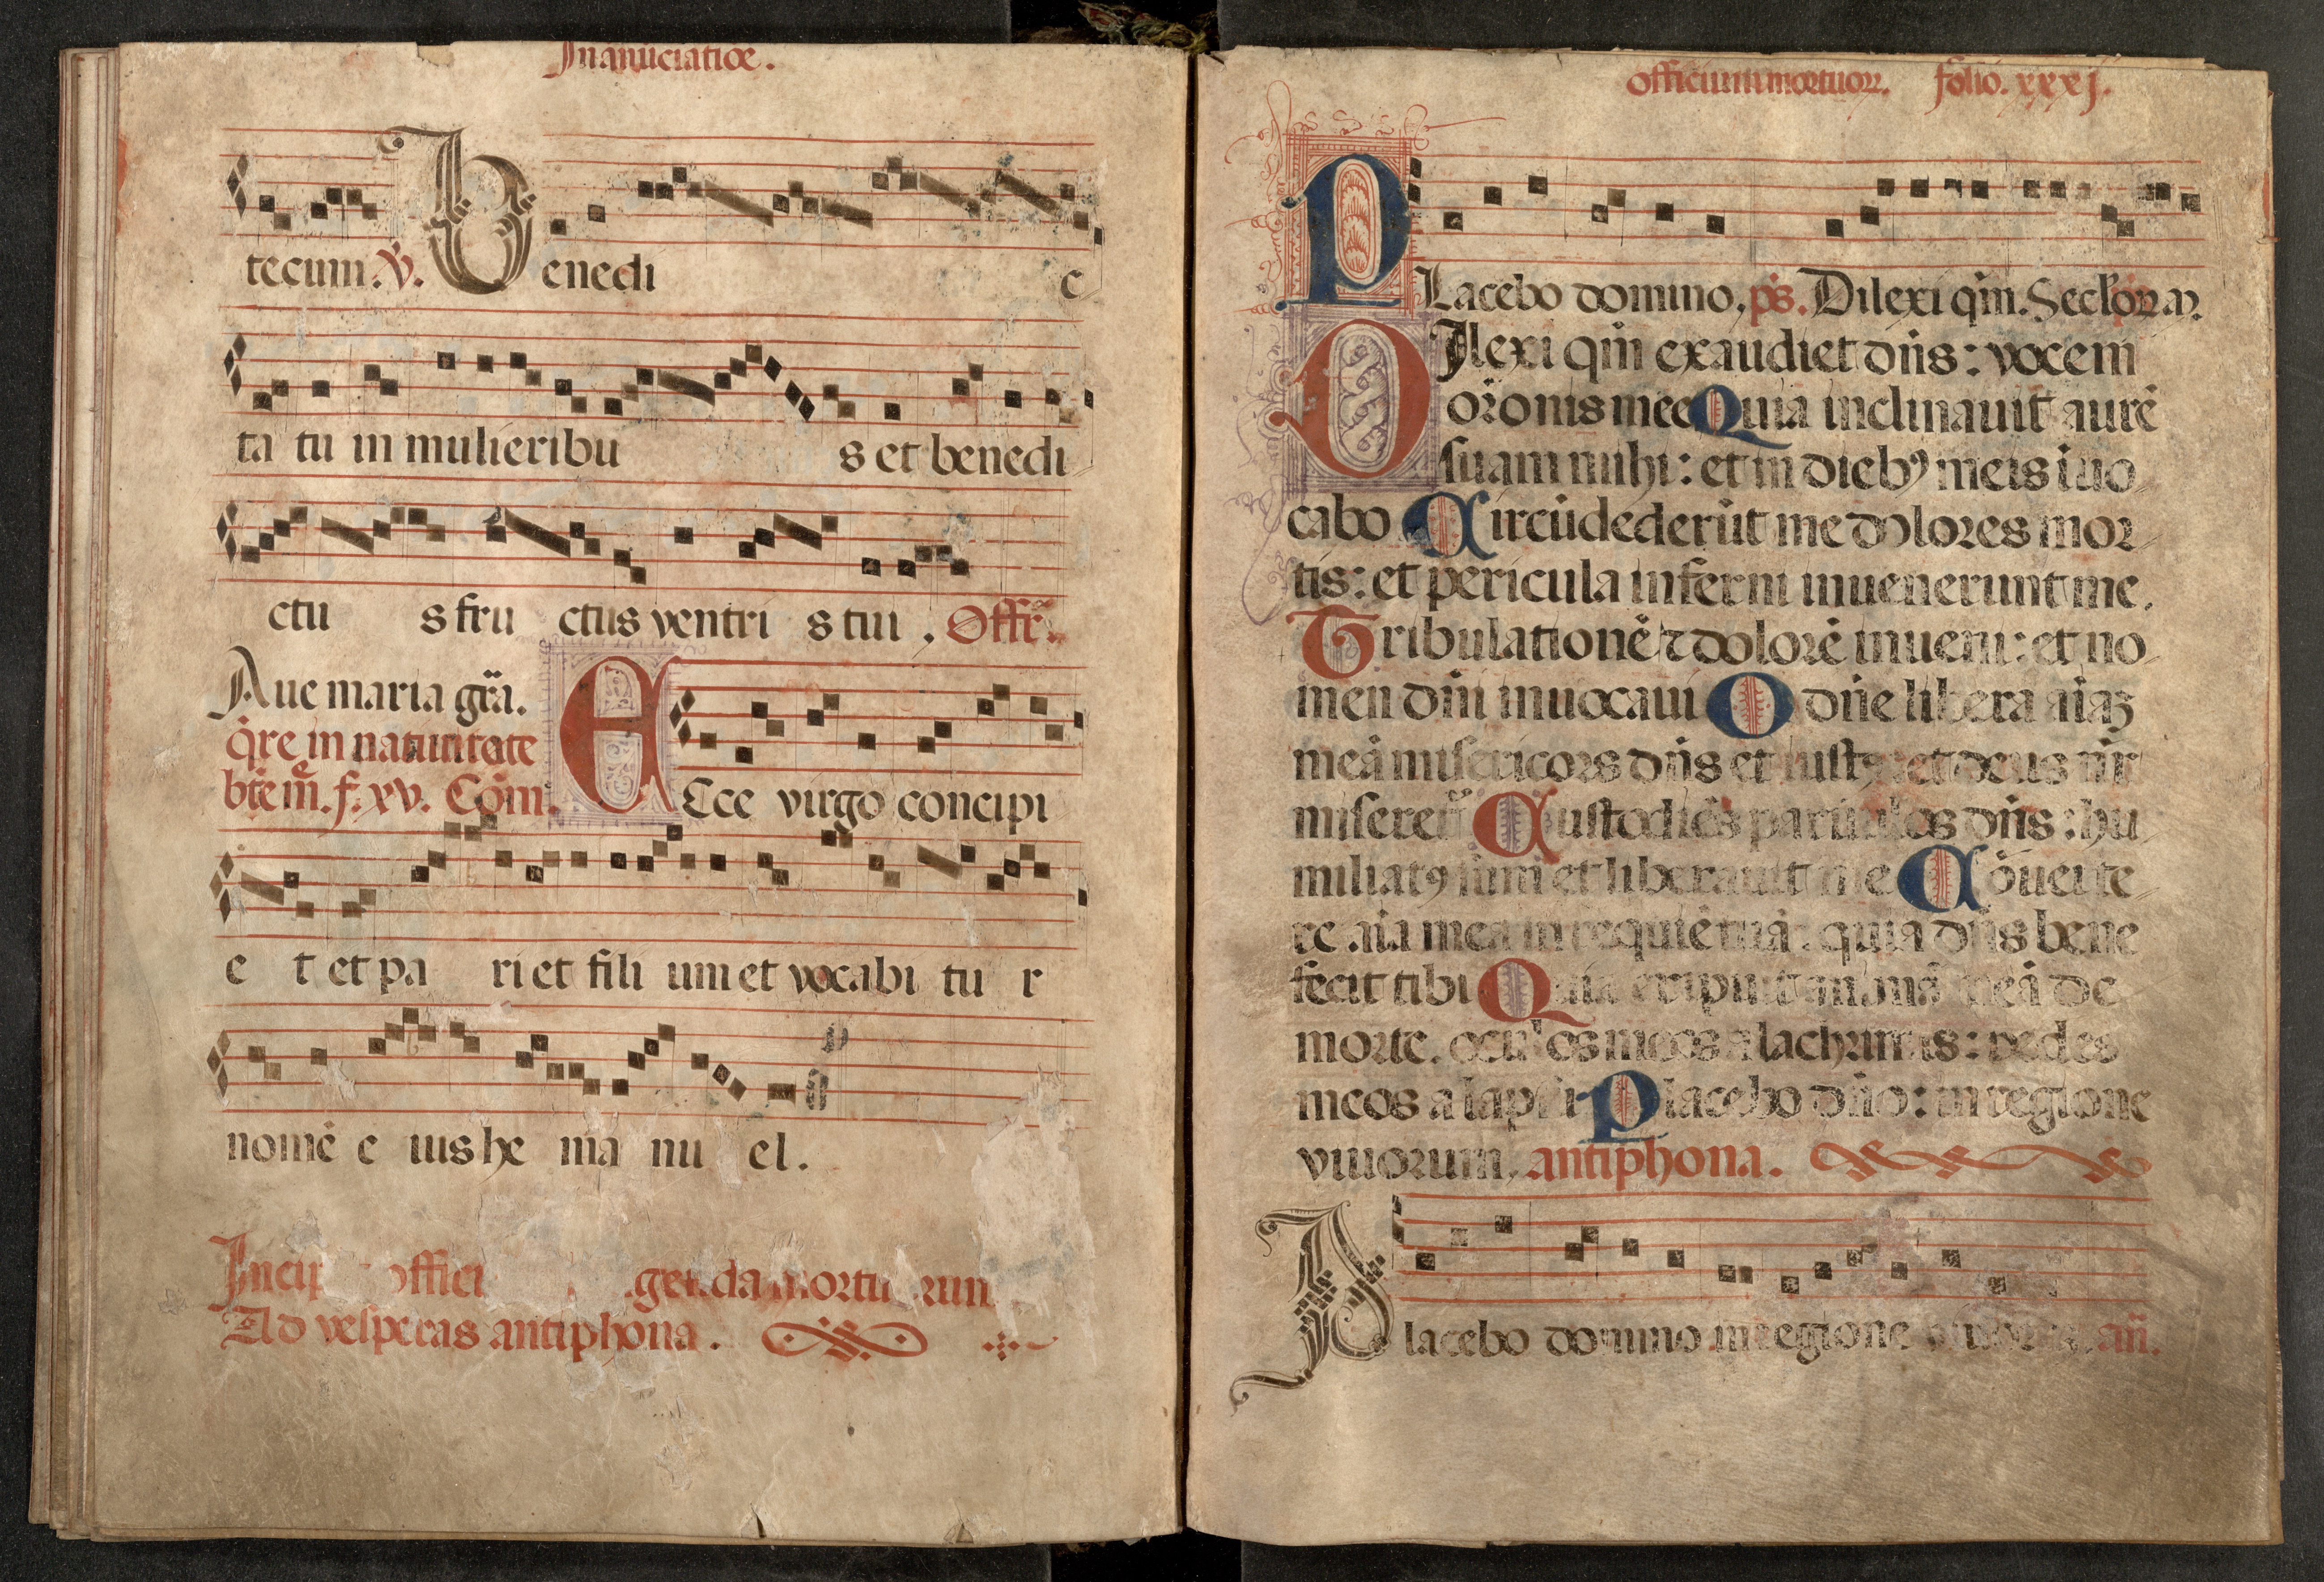 In anūciatiōe.
tecum. V̇. Benedi c
ta tu in mulieribu s et benedi
ctu s fru ctus ventri s tui. Offr̄.
Aue maria grā.
q̇re in natiuitate
btē m̄. f. xv. Cōm.
ECce virgo concipi
e t et pa ri et fili um et vocabi tu r
nomē e ius he ma nu el.
Ad vesperas antiphona.
officium mortuoꝝ. folio. xxxj.
PLacebo domino. ps. Dilexi qm̄.
DIlexi qm̄ exaudiet dn̄s: vocem
or̄onis mee Quia inclinauit aurē
suam mihi: et in dieb⁹ meis īuo
cabo Circūdederūt me dolores mor
tis: et pericula inferni inuenerunt me.
Tribulationē ⁊ dolorē inueni: et no
men dn̄i inuocaui O dn̄e libera aīaꝫ
meā misericors dn̄s et iust⁹: et deus nr̄
miseret̄ Custodiēs paruulos dn̄s: hu
miliat⁹ sum et liberauit me Cōuerte
re aīa mea in requiē tuā: quia dn̄s bene
fecit tibi Quia eripuit animā meā de
morte. oculos meos a lachrimis: pedes
meos a lapsu Placebo dn̄o: in regione
viuorum. antiphona.
Placebo domino in regione an̄.